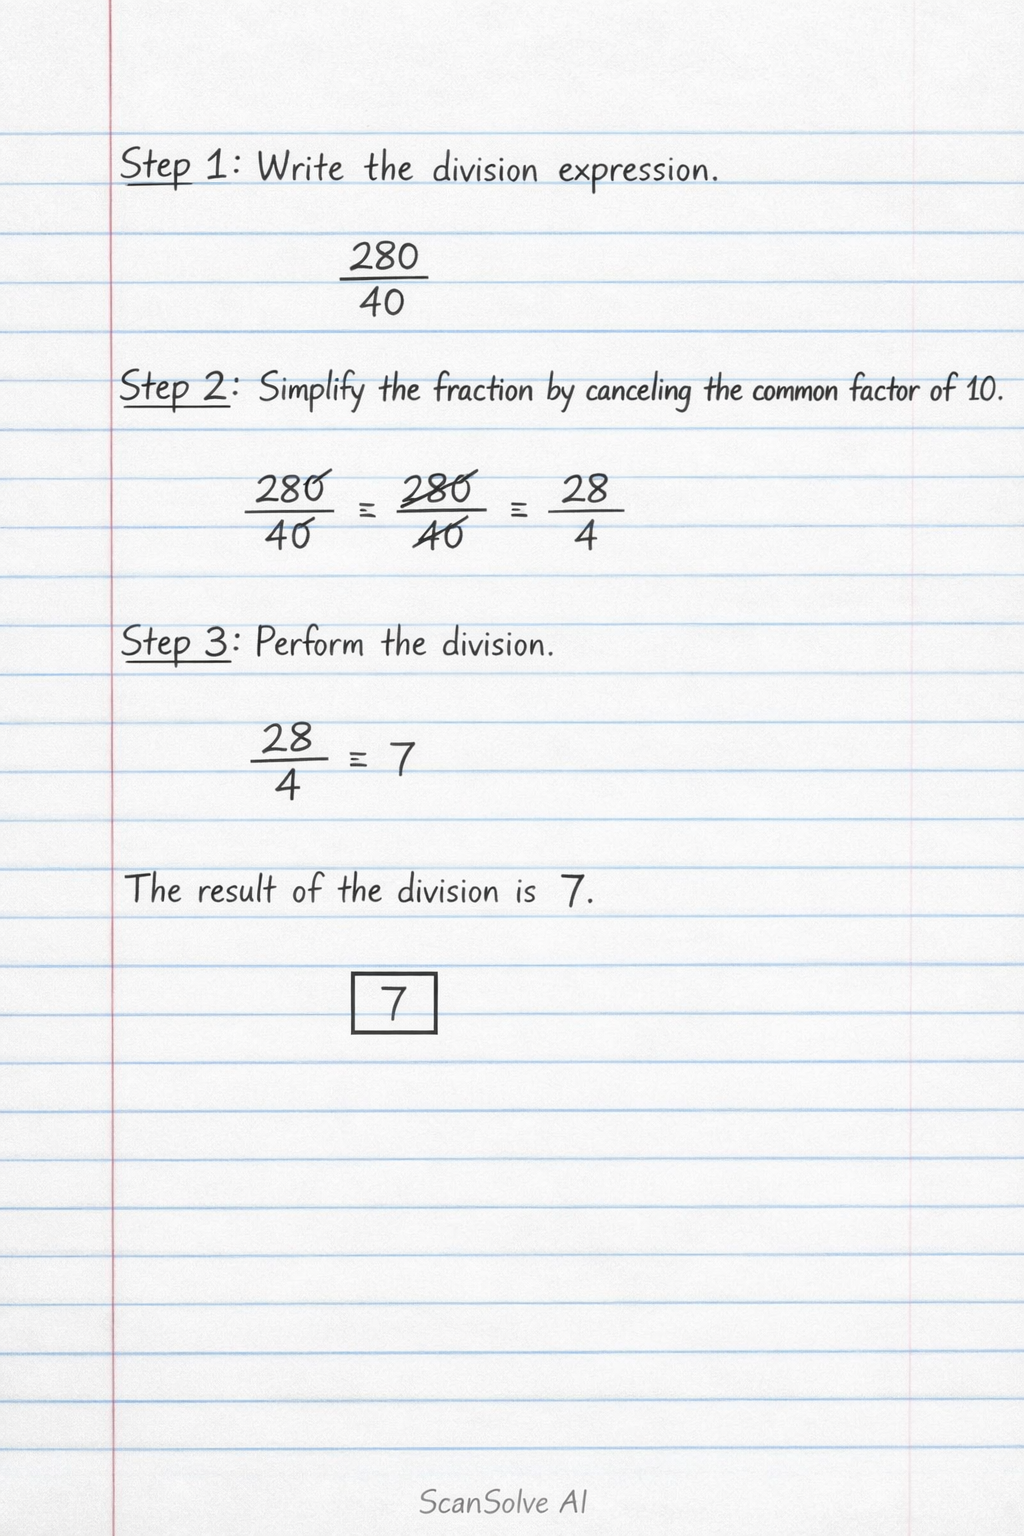 Step 1: Write the division expression.
280
40
Step 2: Simplify the fraction by canceling the common factor of 10.
280 ≡ 280 ≡ 28
40 40 4
Step 3: Perform the division.
28 ≡ 7
4
The result of the division is 7.
7
ScanSolve AI